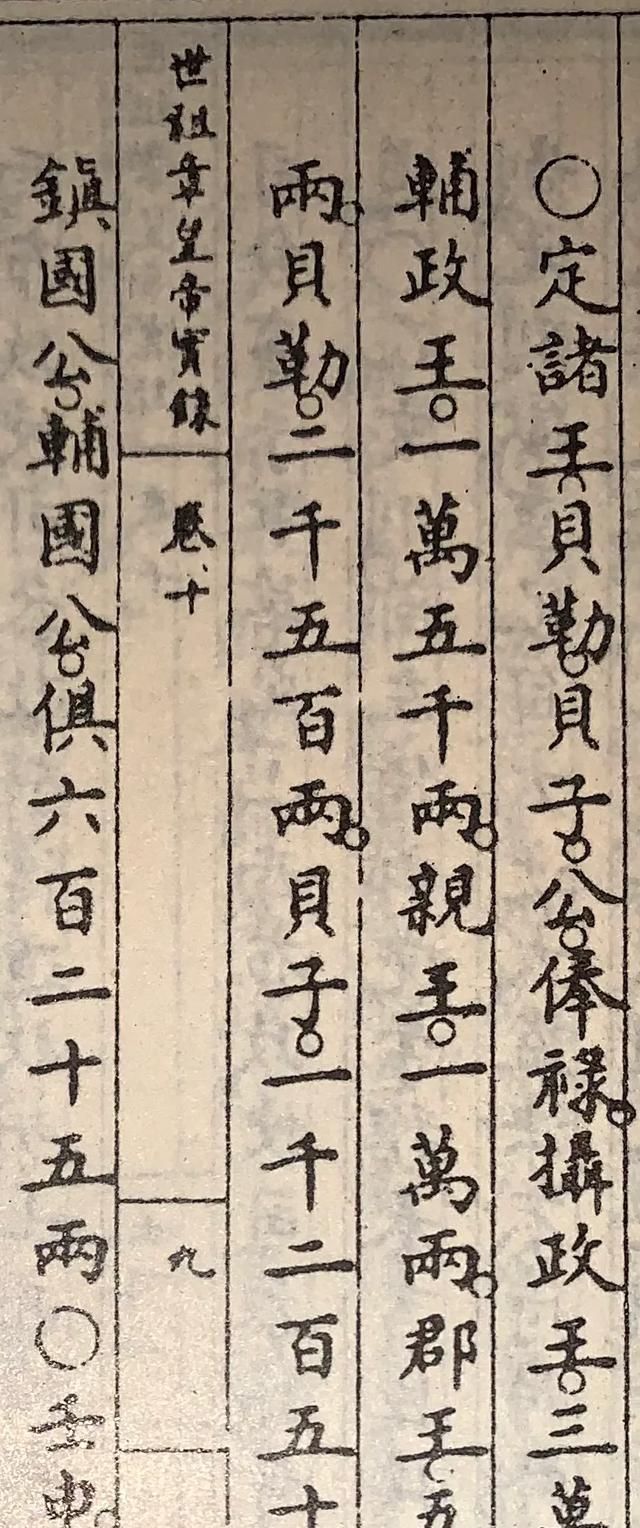 ○定諸王貝勒貝子公俸祿攝政王三萬
輔政王一萬五千兩親王一萬兩郡王五
兩貝勒二千五百兩貝子一千二百五十
世祖章皇帝實錄 卷十 九
鎭國公輔國公俱六百二十五兩○壬申